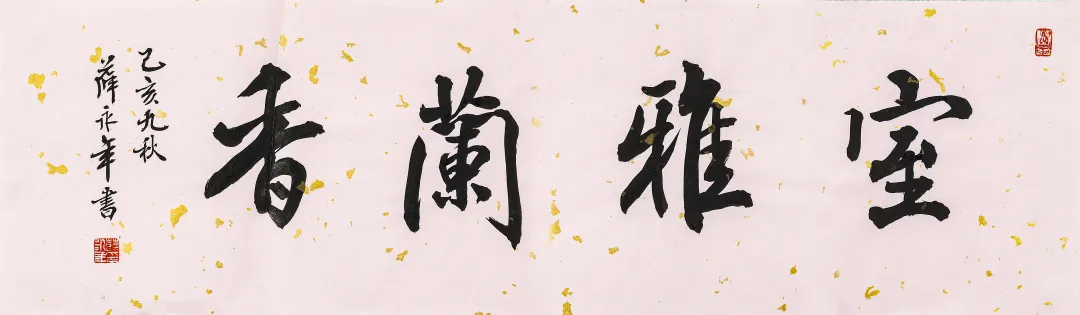 室雅蘭香
己亥九秋
薛永年書